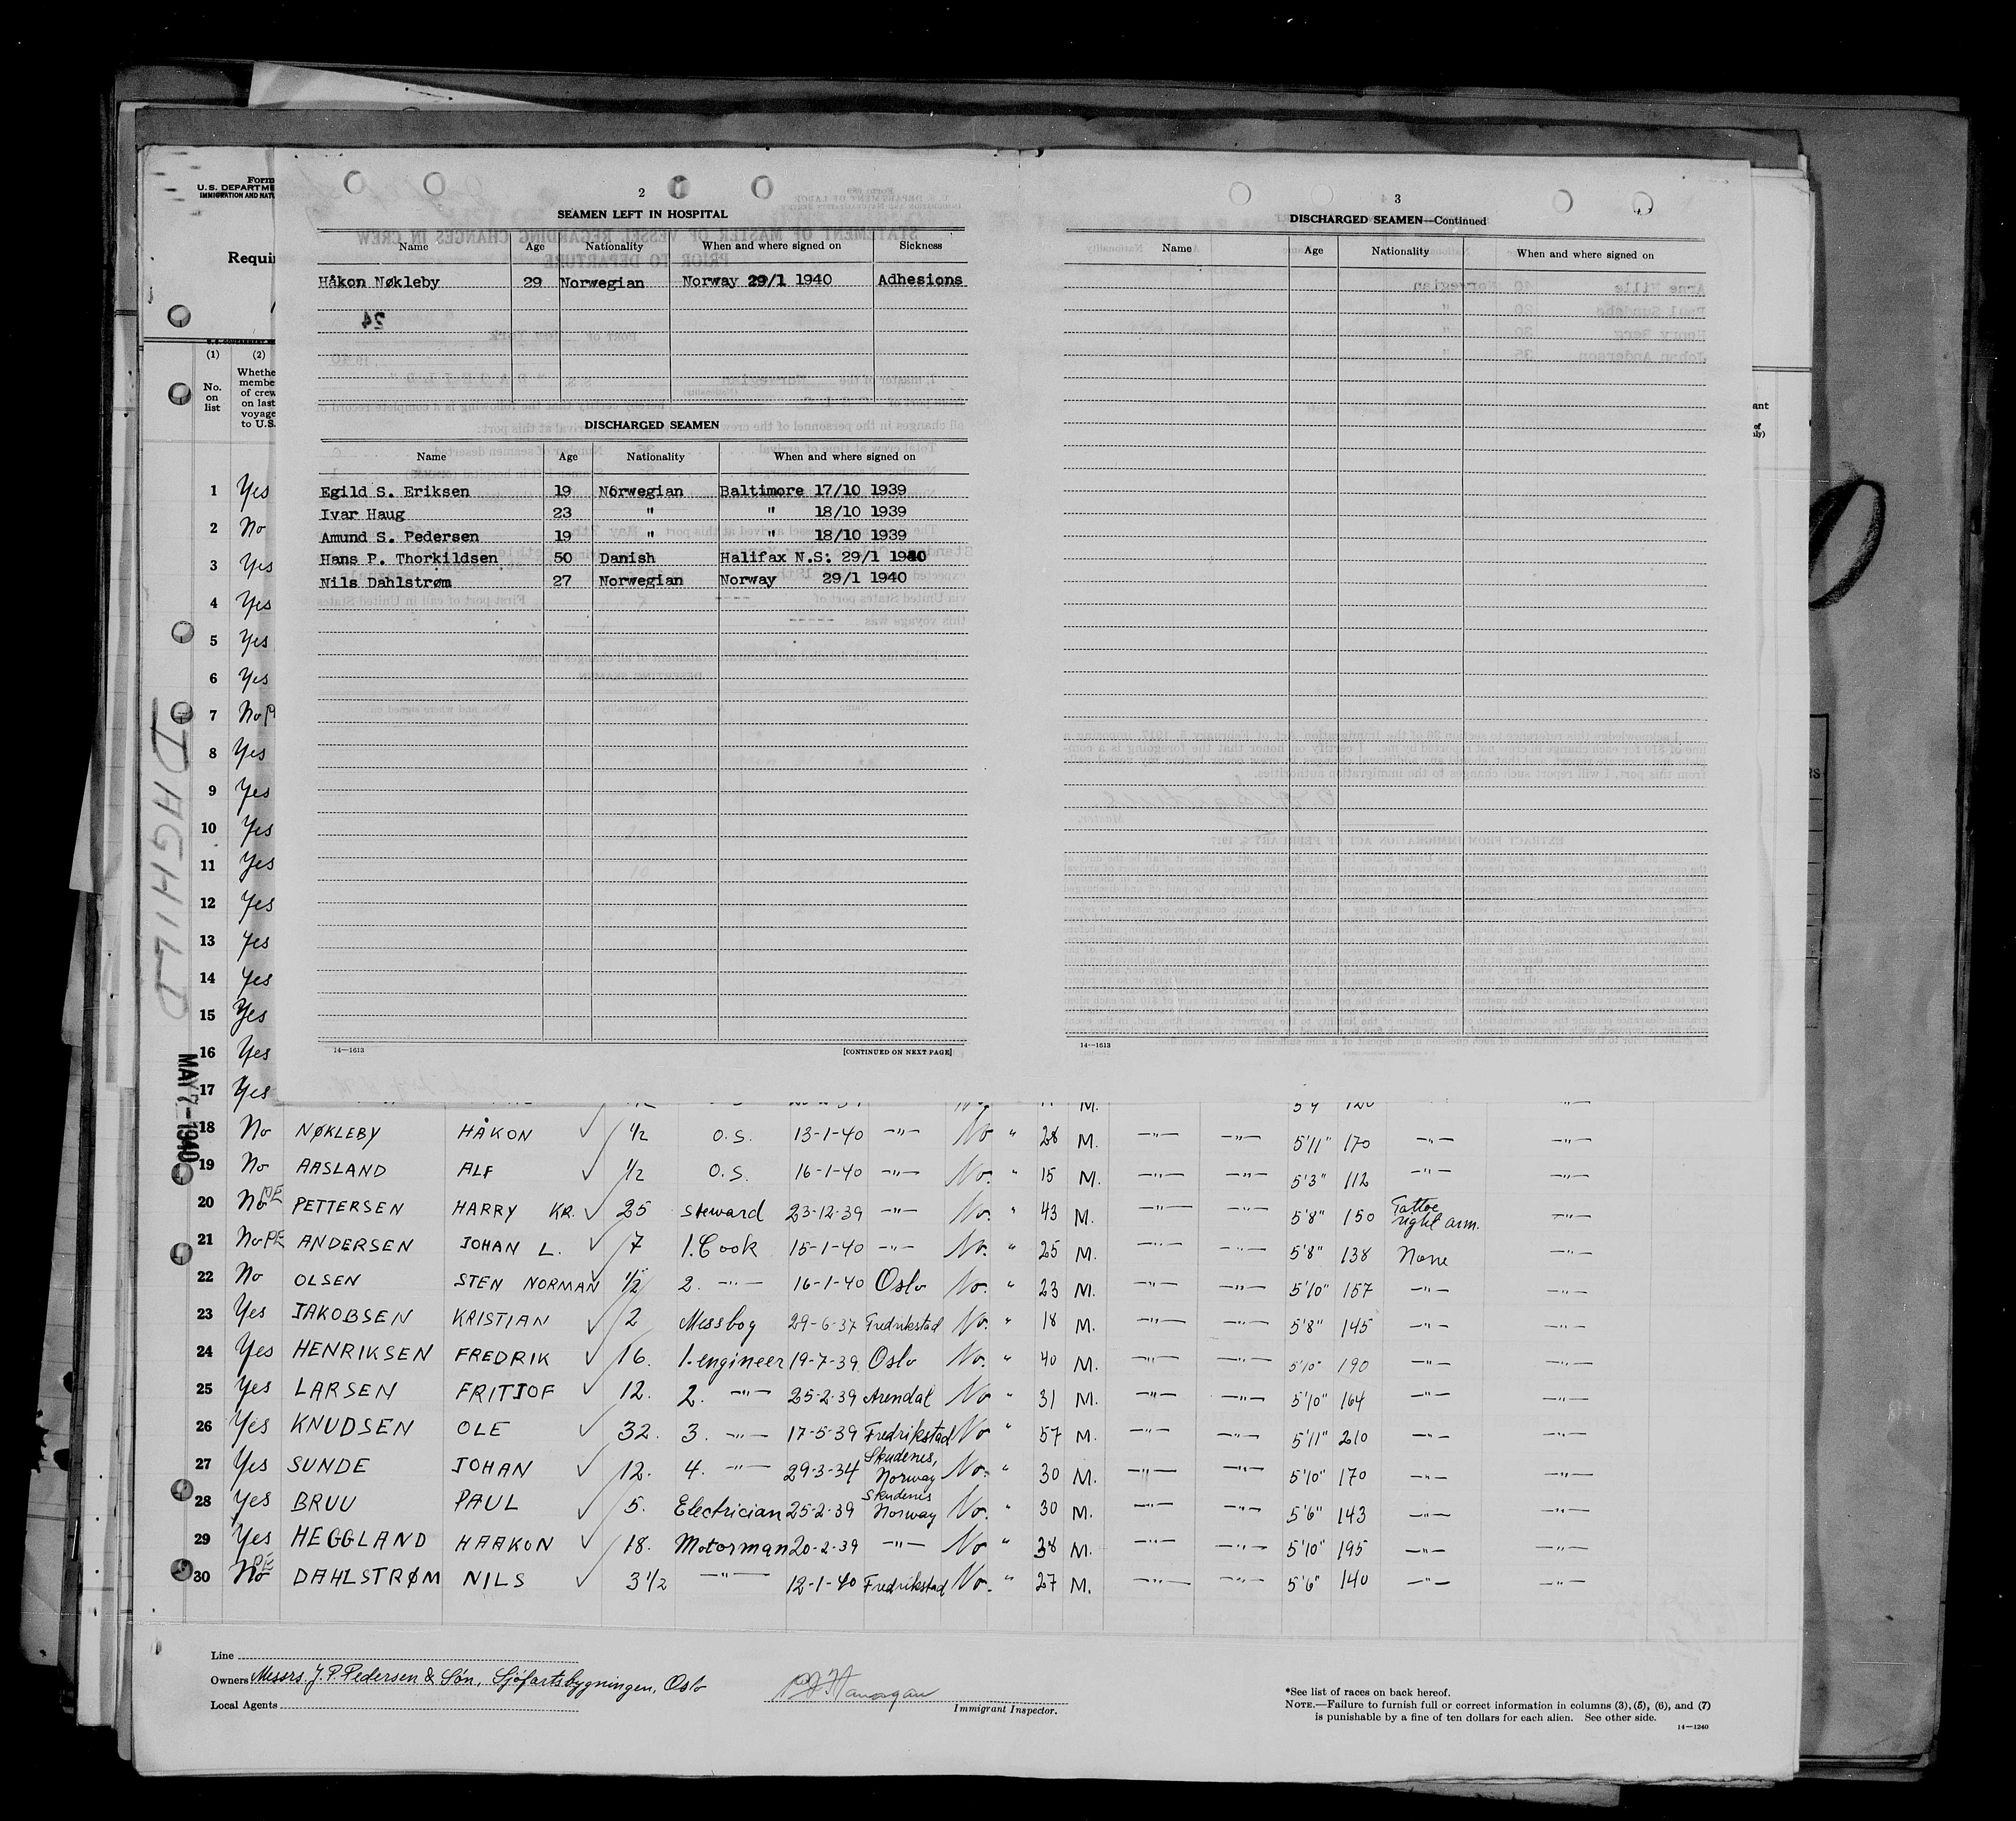 Form
U.S. DEPARTME
IMMIGRATION AND NATU
Requir
(1) (2)
No. on list
Whethe
membe
of crew
on last
voyage
to U.S.
2
SEAMEN LEFT IN HOSPITAL
Name Age Nationality When and where signed on Sickness
Håkon Nøkleby 29 Norwegian Norway 29/1 1940 Adhesions
24
DISCHARGED SEAMEN
Name Age Nationality When and where signed on
Egild S. Eriksen 19 Norwegian Baltimore 17/10 1939
Ivar Haug 23 " " 18/10 1939
Amund S. Pedersen 19 " " 18/10 1939
Hans P. Thorkildsen 50 Danish Halifax N.S: 29/1 1940
Nils Dahlstrøm 27 Norwegian Norway 29/1 1940
14—1613 [CONTINUED ON NEXT PAGE]
3
DISCHARGED SEAMEN—Continued
Name Age Nationality When and where signed on
14—1613
DAGHILD
MAY 7-1940
1 Yes
2 No
3 Yes
4 Yes
5 Yes
6 Yes
7 No
8 Yes
9 Yes
10 Yes
11 Yes
12 Yes
13 Yes
14 Yes
15 Yes
16 Yes
17 Yes
18 No NØKLEBY HÅKON ✓ 1/2 O.S. 13-1-40 —"— No " 28 M. —"— —"— 5'11" 170 —"— —"—
19 No AASLAND ALF ✓ 1/2 O.S. 16-1-40 —"— No. " 15 M. —"— —"— 5'3" 112 —"— —"—
20 No PE PETTERSEN HARRY KR. ✓ 25 Steward 23-12-39 —"— No. " 43 M. —"— —"— 5'8" 150 Tattoe right arm. —"—
21 No PE ANDERSEN JOHAN L. ✓ 7 1. Cook 15-1-40 —"— No. " 25 M. —"— —"— 5'8" 138 None —"—
22 No OLSEN STEN NORMAN ✓ 1/2 2. —"— 16-1-40 Oslo No. " 23 M. —"— —"— 5'10" 157 —"— —"—
23 Yes JAKOBSEN KRISTIAN ✓ 2 Messboy 29-6-37 Fredrikstad No. " 18 M. —"— —"— 5'8" 145 —"— —"—
24 Yes HENRIKSEN FREDRIK ✓ 16. 1. engineer 19-7-39 Oslo No. " 40 M. —"— —"— 5'10" 190 —"— —"—
25 Yes LARSEN FRITJOF ✓ 12. 2. —"— 25-2-39 Arendal No " 31 M. —"— —"— 5'10" 164 —"— —"—
26 Yes KNUDSEN OLE ✓ 32. 3. —"— 17-5-39 Fredrikstad No " 57 M. —"— —"— 5'11" 210 —"— —"—
27 Yes SUNDE JOHAN ✓ 12. 4. —"— 29-3-34 Skudenes, Norway No. " 30 M. —"— —"— 5'10" 170 —"— —"—
28 Yes BRUU PAUL ✓ 5. Electrician 25-2-39 Skudenes Norway No. " 30 M. —"— —"— 5'6" 143 —"— —"—
29 Yes HEGGLAND HAAKON ✓ 18. Motorman 20-2-39 —"— No " 38 M. —"— —"— 5'10" 195 —"— —"—
30 No PE DAHLSTRØM NILS ✓ 3 1/2 —"— 12-1-40 Fredrikstad No. " 27 M. —"— —"— 5'6" 140 —"— —"—
Line
Owners Messrs. J. P. Pedersen & Søn, Sjøfartsbygningen, Oslo
Local Agents
Immigrant Inspector.
*See list of races on back hereof.
NOTE.—Failure to furnish full or correct information in columns (3), (5), (6), and (7)
is punishable by a fine of ten dollars for each alien. See other side.
14—1240